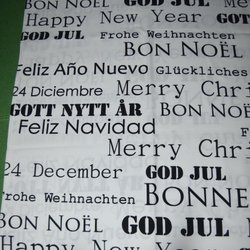 BON NOËL GOD JUL
Happy New Year GOD
GOD JUL Frohe Weihnachten
BON NOËL
Feliz Año Nuevo Glückliches
24 Diciembre Merry Chri
GOTT NYTT ÅR BON NOËL
Feliz Navidad
Merry Chri
24 December GOD JUL
Frohe Weihnachten BONNE
BON NOËL GOD JUL
Happy New Year